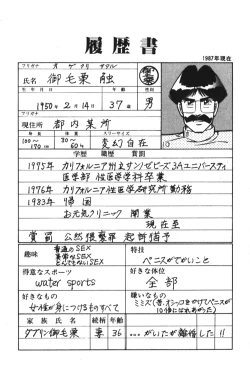 履歴書
1987年現在
フリガナ
オゲクリ サワル
氏名 御毛栗 触
生年月日 年齢 性別
1950年 2月 14日 37歳 男
フリガナ
現住所 都内某所
身長 体重 スリーサイズ
100〜190cm 30〜60kg 変幻自在
学歴 職歴 賞罰
1975年 カリフォルニア州立サンノゼビーズ3Aユニバースティ
医学部 性医学学科卒業
1976年 カリフォルニア性医学研究所勤務
1983年 帰国
お元気クリニック 開業
現在至
賞罰 公然猥褻罪 起訴猶予
趣味
普通のSEX
異常なSEX
とんでもないSEX
特技
ペニスがでかいこと
得意なスポーツ
water sports
好きな体位
全部
好きなもの
女性が身につけるものすべて
嫌いなもの
ミミズ(昔、オシッコをかけてペニスが10倍にはれあがった)
家族氏名 続柄 年齢
御毛栗 妻 36
…がいたが離婚した!!